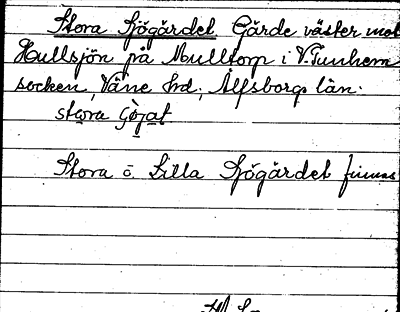 Stora Sjögärdet Gärde väster mot
Hullsjön på Mulltorp i V. Tunhem
socken, Väne hd, Älfsborgs län.
stora Göjat
Stora o. Lilla Sjögärdet finnas